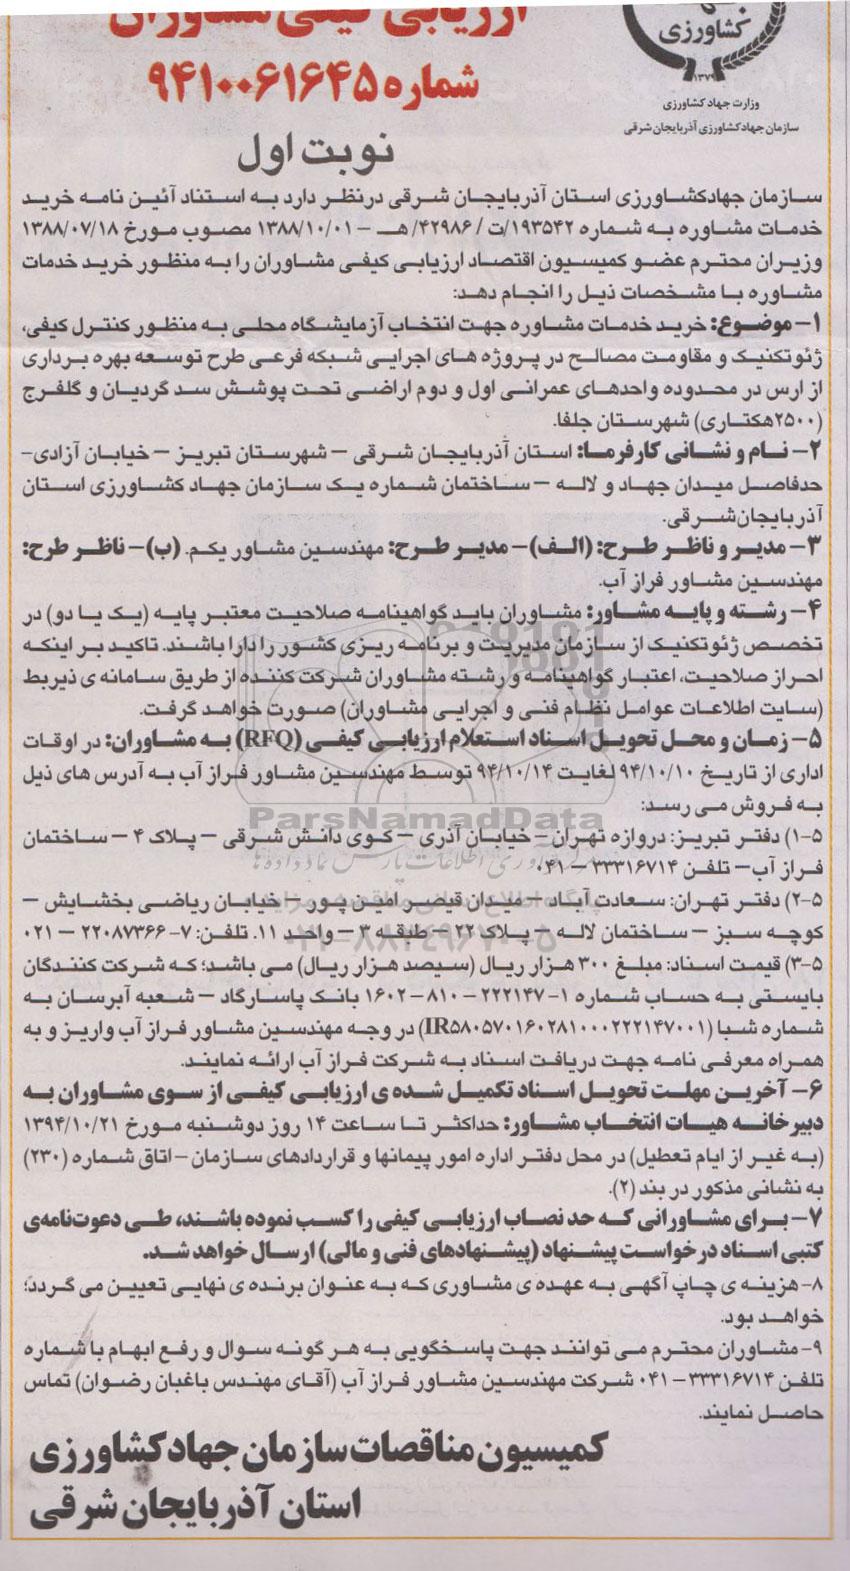 ارزیابی کیفی مشاوران
شماره ۹۴۱۰۰۶۱۶۴۵
جهاد
کشاورزی
۱۳۷۹
وزارت جهاد کشاورزی
سازمان جهاد کشاورزی آذربایجان شرقی
نوبت اول
سازمان جهادکشاورزی استان آذربایجان شرقی درنظر دارد به استناد آئین نامه خرید
خدمات مشاوره به شماره ۱۹۳۵۴۲/ت / ۴۲۹۸۶/ هـ – ۱۳۸۸/۱۰/۰۱ مصوب مورخ ۱۳۸۸/۰۷/۱۸
وزیران محترم عضو کمیسیون اقتصاد ارزیابی کیفی مشاوران را به منظور خرید خدمات
مشاوره با مشخصات ذیل را انجام دهد:
۱- موضوع: خرید خدمات مشاوره جهت انتخاب آزمایشگاه محلی به منظور کنترل کیفی،
ژئوتکنیک و مقاومت مصالح در پروژه های اجرایی شبکه فرعی طرح توسعه بهره برداری
از ارس در محدوده واحدهای عمرانی اول و دوم اراضی تحت پوشش سد گردیان و گلفرج
(۲۵۰۰هکتاری) شهرستان جلفا.
۲- نام و نشانی کارفرما: استان آذربایجان شرقی – شهرستان تبریز – خیابان آزادی-
حدفاصل میدان جهاد و لاله – ساختمان شماره یک سازمان جهاد کشاورزی استان
آذربایجان‌شرقی.
۳- مدیر و ناظر طرح: (الف)- مدیر طرح: مهندسین مشاور یکم. (ب)- ناظر طرح:
مهندسین مشاور فراز آب.
۴- رشته و پایه مشاور: مشاوران باید گواهینامه صلاحیت معتبر پایه (یک یا دو) در
تخصص ژئوتکنیک از سازمان مدیریت و برنامه ریزی کشور را دارا باشند. تاکید بر اینکه
احراز صلاحیت، اعتبار گواهینامه و رشته مشاوران شرکت کننده از طریق سامانه ی ذیربط
(سایت اطلاعات عوامل نظام فنی و اجرایی مشاوران) صورت خواهد گرفت.
۵- زمان و محل تحویل اسناد استعلام ارزیابی کیفی (RFQ) به مشاوران: در اوقات
اداری از تاریخ ۹۴/۱۰/۱۰ لغایت ۹۴/۱۰/۱۴ توسط مهندسین مشاور فراز آب به آدرس های ذیل
به فروش می رسد:
ParsNamadData
۵-۱) دفتر تبریز: دروازه تهران- خیابان آذری – کوی دانش شرقی – پلاک ۴ – ساختمان
فراز آب– تلفن ۳۳۳۱۶۷۱۴ – ۰۴۱
۵-۲) دفتر تهران: سعادت آباد – میدان قیصر امین پور – خیابان ریاضی بخشایش –
کوچه سبز – ساختمان لاله – پلاک ۲۲ – طبقه ۳ – واحد ۱۱. تلفن: ۷- ۲۲۰۸۷۳۶۶ – ۰۲۱
۵-۳) قیمت اسناد: مبلغ ۳۰۰ هزار ریال (سیصد هزار ریال) می باشد؛ که شرکت کنندگان
بایستی به حساب شماره ۱- ۲۲۲۱۴۷ – ۸۱۰ – ۱۶۰۲ بانک پاسارگاد – شعبه آبرسان به
شماره شبا (IR۵۸۰۵۷۰۱۶۰۲۸۱۰۰۰۲۲۲۱۴۷۰۰۱) در وجه مهندسین مشاور فراز آب واریز و به
همراه معرفی نامه جهت دریافت اسناد به شرکت فراز آب ارائه نمایند.
۶- آخرین مهلت تحویل اسناد تکمیل شده ی ارزیابی کیفی از سوی مشاوران به
دبیرخانه هیات انتخاب مشاور: حداکثر تا ساعت ۱۴ روز دوشنبه مورخ ۱۳۹۴/۱۰/۲۱
(به غیر از ایام تعطیل) در محل دفتر اداره امور پیمانها و قراردادهای سازمان – اتاق شماره (۲۳۰)
به نشانی مذکور در بند (۲).
۷- برای مشاورانی که حد نصاب ارزیابی کیفی را کسب نموده باشند، طی دعوت‌نامه‌ی
کتبی اسناد درخواست پیشنهاد (پیشنهادهای فنی و مالی) ارسال خواهد شد.
۸- هزینه ی چاپ آگهی به عهده ی مشاوری که به عنوان برنده ی نهایی تعیین می گردد؛
خواهد بود.
۹- مشاوران محترم می توانند جهت پاسخگویی به هر گونه سوال و رفع ابهام با شماره
تلفن ۳۳۳۱۶۷۱۴ – ۰۴۱ شرکت مهندسین مشاور فراز آب (آقای مهندس باغبان رضوان) تماس
حاصل نمایند.
کمیسیون مناقصات سازمان جهاد کشاورزی
استان آذربایجان شرقی